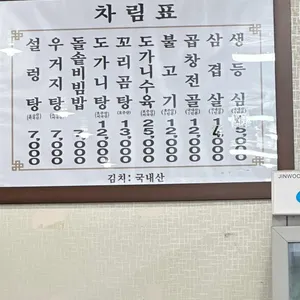 차림표
설렁탕 7,000
우거지탕 7,000
돌솥비빔밥 7,000
도가니탕 12,000
꼬리곰탕 13,000
도가니수육 25,000
불고기 12,000
곱창전골 12,000
삼겹살 14,000
생등심
김치: 국내산